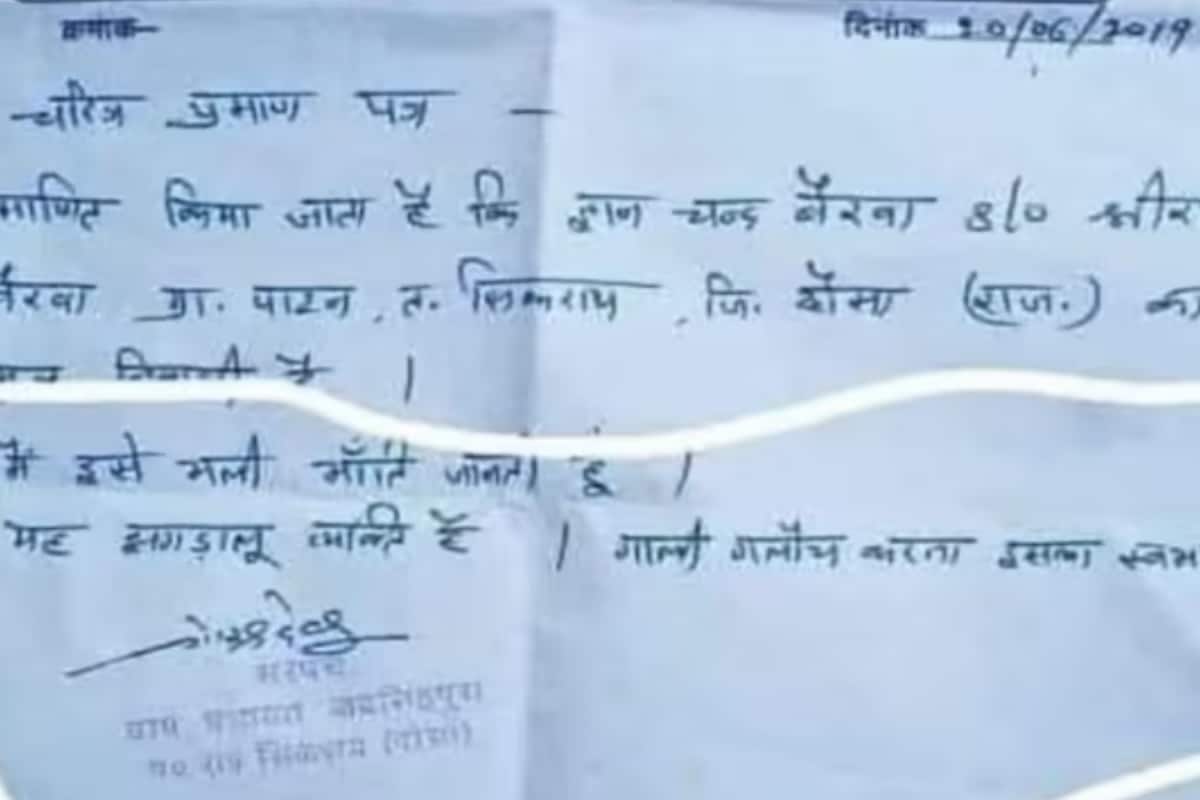 क्रमांक- दिनांक 20/06/2019
-चरित्र प्रमाण पत्र -
माणित किया जाता है कि ज्ञान चन्द बैरवा s/o श्रीर
बैरवा ग्रा. पाटन, त. सिकराय, जि. दौसा (राज.) का
निवासी है ।
मैं इसे भली भाँति जानता हूं ।
यह झगड़ालू व्यक्ति है । गाली गलौच करना इसका स्वभ
सरपंच
ग्राम पंचायत
प० स० सिकराय (दौसा)